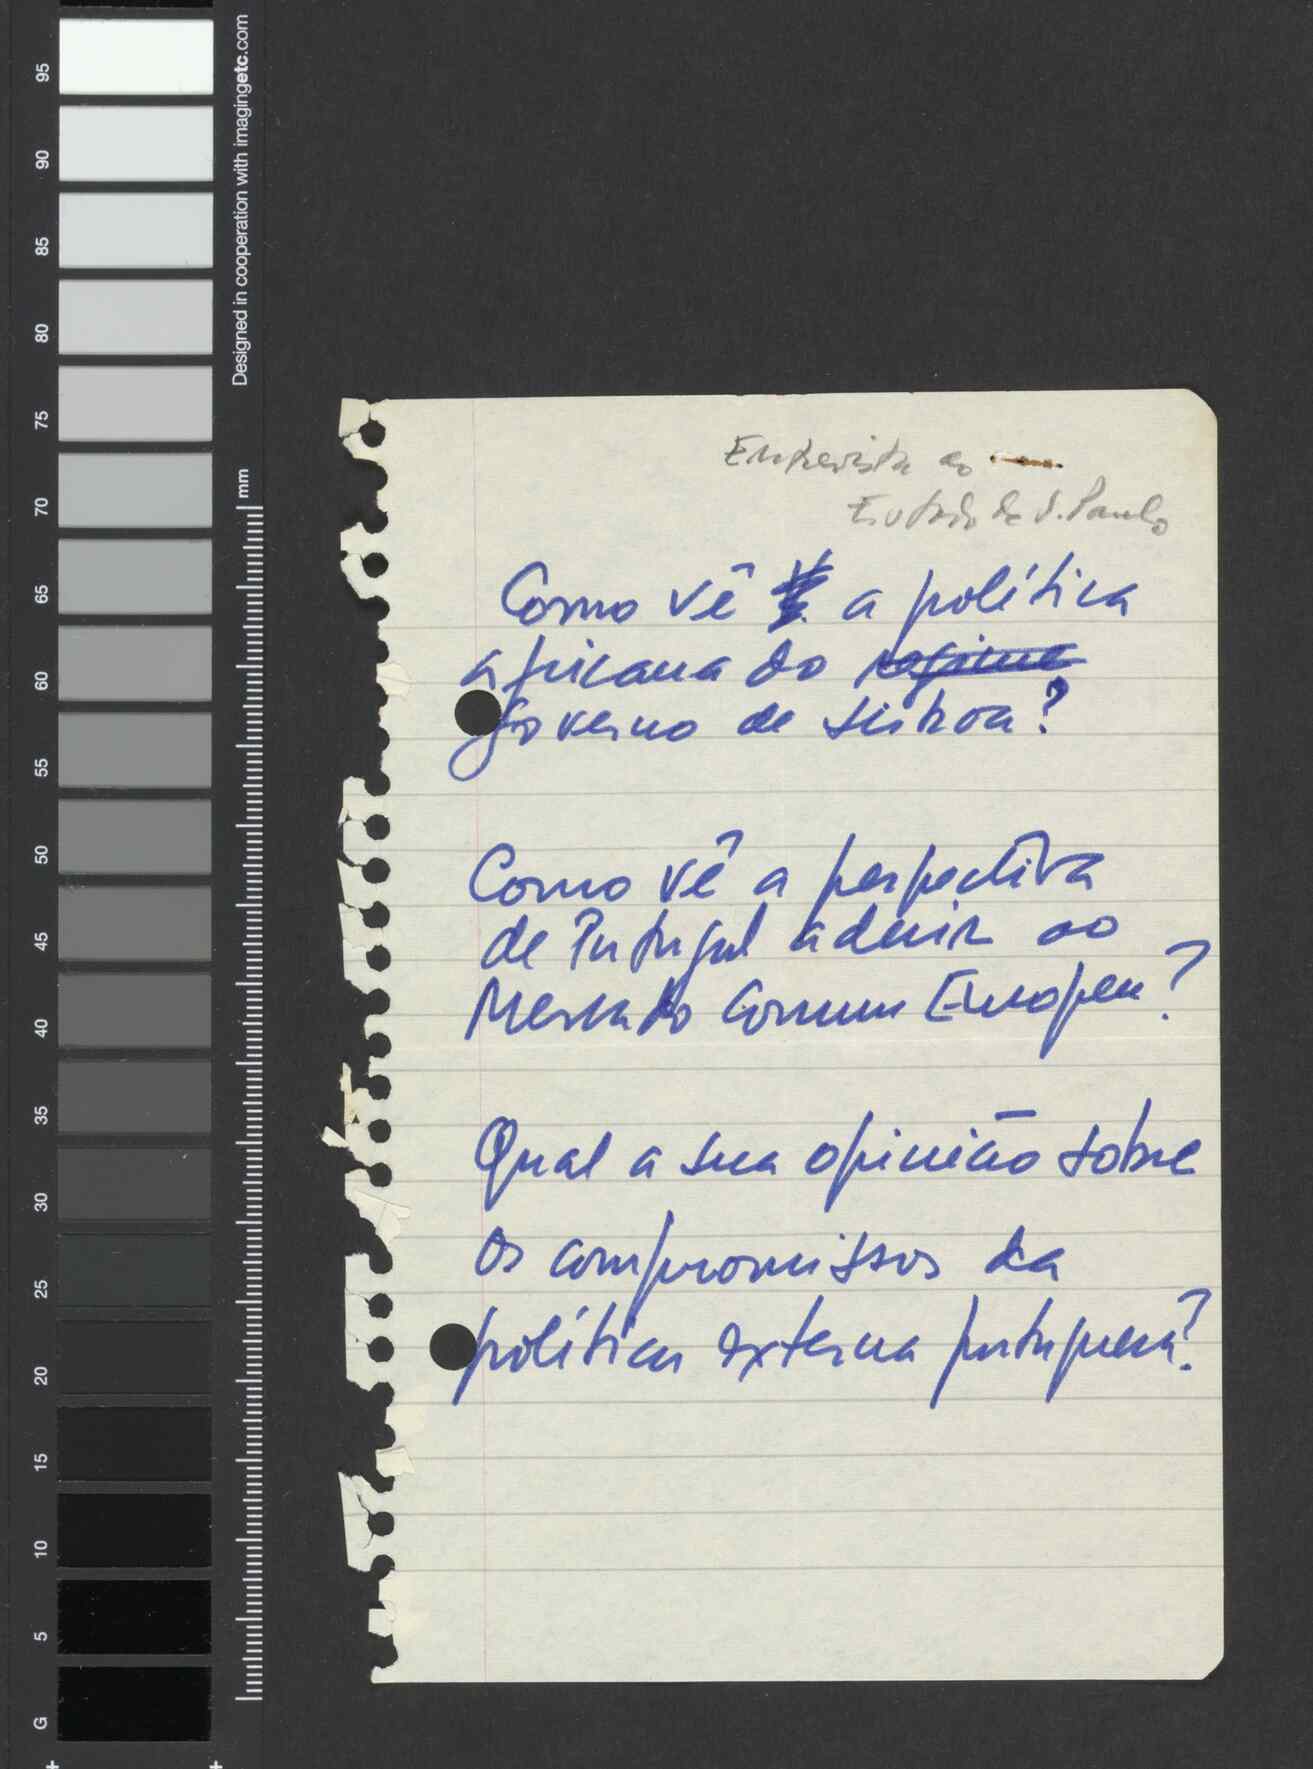 95
90
85
80
75
70
65
60
55
50
45
40
35
30
25
20
15
10
5
G
Designed in cooperation with imagingetc.com
mm
Entrevista ao
Estado de S. Paulo
Como vê a política
africana do regime
Governo de Lisboa?
Como vê a perspectiva
de Portugal aderir ao
Mercado Comum Europeu?
Qual a sua opinião sobre
os compromissos da
política externa portuguesa?